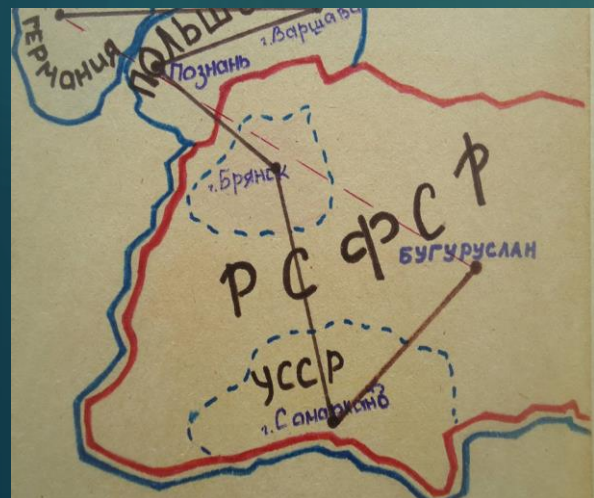 ГЕРМАНИЯ
ПОЛЬШ
г. Варшава
Познань
г. Брянск
РСФСР
БУГУРУСЛАН
УССР
г. Самарканд